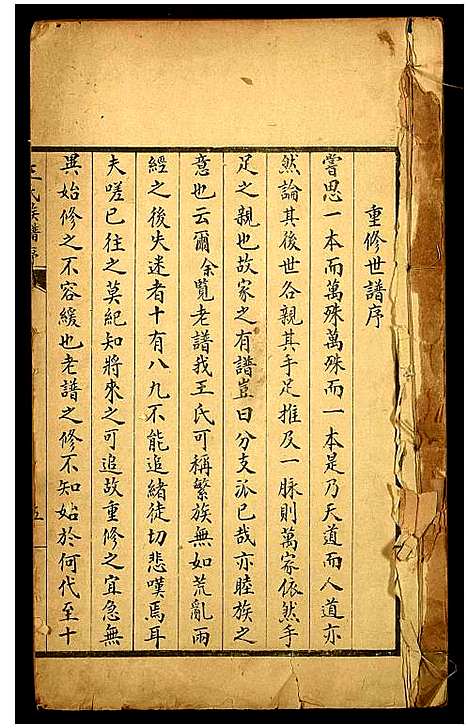 重修世譜序
嘗思一本而萬殊萬殊而一本是乃天道而人道亦
然論其後世各親其手足推及一脉則萬家依然手
足之親也故家之有譜豈曰分支派已哉亦睦族之
意也云爾余覧老譜我王氏可稱繁族無如荒亂兩
經之後失迷者十有八九不能追緒徒切悲嘆焉耳
夫嗟已往之莫紀知將來之可追故重修之宜急無
異始修之不容緩也老譜之修不知始於何代至十
王氏族譜序
五